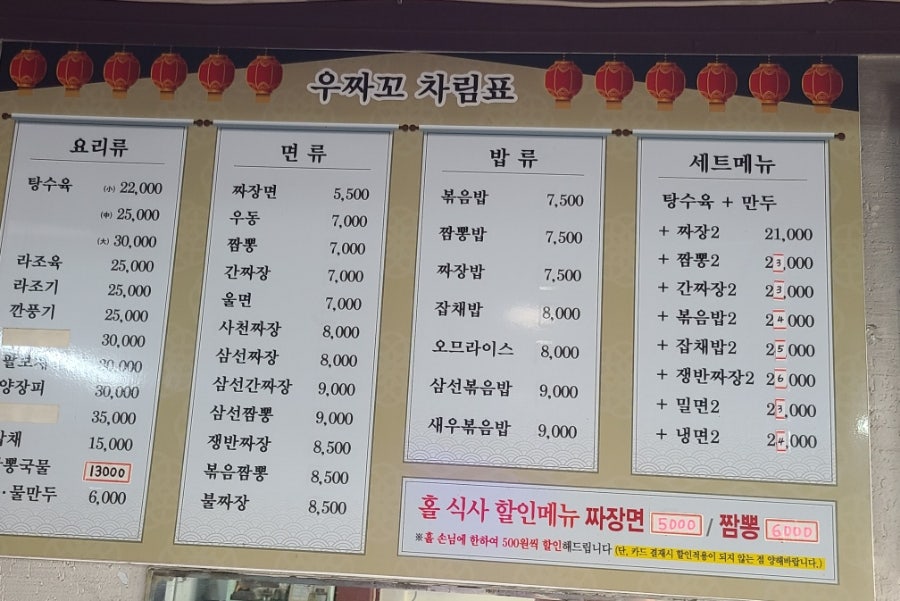 우짜꼬 차림표
요리류
탕수육 (小) 22,000
(中) 25,000
(大) 30,000
라조육 25,000
라조기 25,000
깐풍기 25,000
30,000
팔보채 30,000
양장피 30,000
35,000
잡채 15,000
짬뽕국물 13000
·물만두 6,000
면류
짜장면 5,500
우동 7,000
짬뽕 7,000
간짜장 7,000
울면 7,000
사천짜장 8,000
삼선짜장 8,000
삼선간짜장 9,000
삼선짬뽕 9,000
쟁반짜장 8,500
볶음짬뽕 8,500
불짜장 8,500
밥류
볶음밥 7,500
짬뽕밥 7,500
짜장밥 7,500
잡채밥 8,000
오므라이스 8,000
삼선볶음밥 9,000
새우볶음밥 9,000
세트메뉴
탕수육 + 만두
+ 짜장2 21,000
+ 짬뽕2 23,000
+ 간짜장2 23,000
+ 볶음밥2 24,000
+ 잡채밥2 25,000
+ 쟁반짜장2 26,000
+ 밀면2 23,000
+ 냉면2 24,000
홀 식사 할인메뉴 짜장면 5000 / 짬뽕 6000
※홀 손님에 한하여 500원씩 할인해드립니다 (단, 카드 결재시 할인적용이 되지 않는 점 양해바랍니다.)